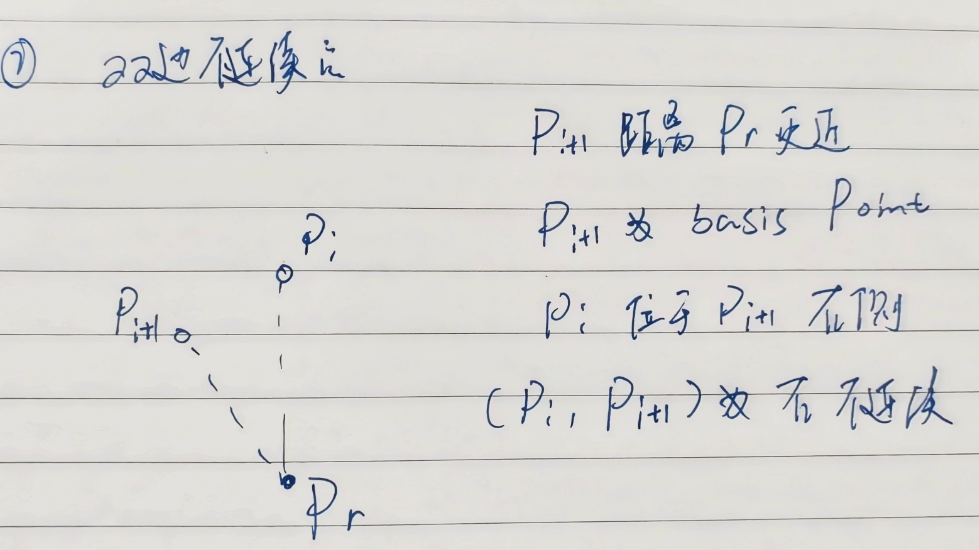 ① 右边不连续点
P_{i+1} 距离 P_r 更近
P_{i+1} 为 basis Point
P_i 位于 P_{i+1} 右侧
(P_i, P_{i+1}) 为 右 不连续
P_i
P_{i+1}
P_r